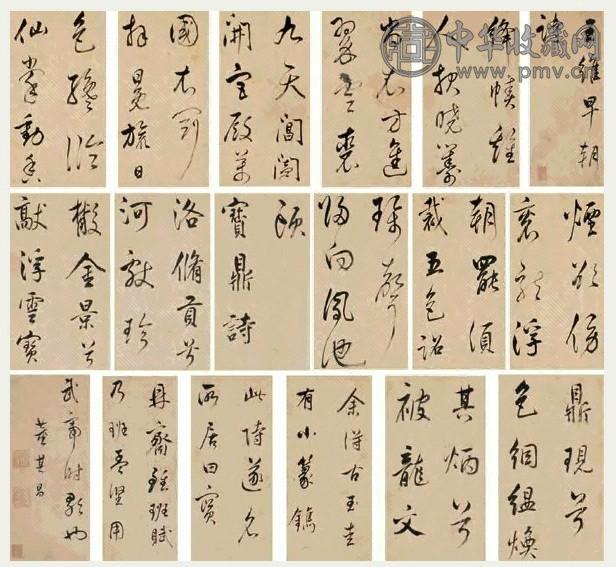 中华收藏网
www.pmv.cn
王維早朝
詩
絳幘雞
人報曉籌
尚衣方進
翠雲裘
九天閶闔
開宮殿萬
國衣冠
拜冕旒日
色纔臨
仙掌動香
煙欲傍
袞龍浮
朝罷須
裁五色詔
珮聲
歸向鳳池
頭
寶鼎詩
洛脩貢兮
河獻珍
金景兮
歊浮雲寶
鼎現兮
色絪縕煥
其炳兮
被龍文
余得古玉圭
有小篆鐫
此詩遂名
所居曰寶
鼎齋班賦
乃班孟堅用
武帝時歌也
董其昌